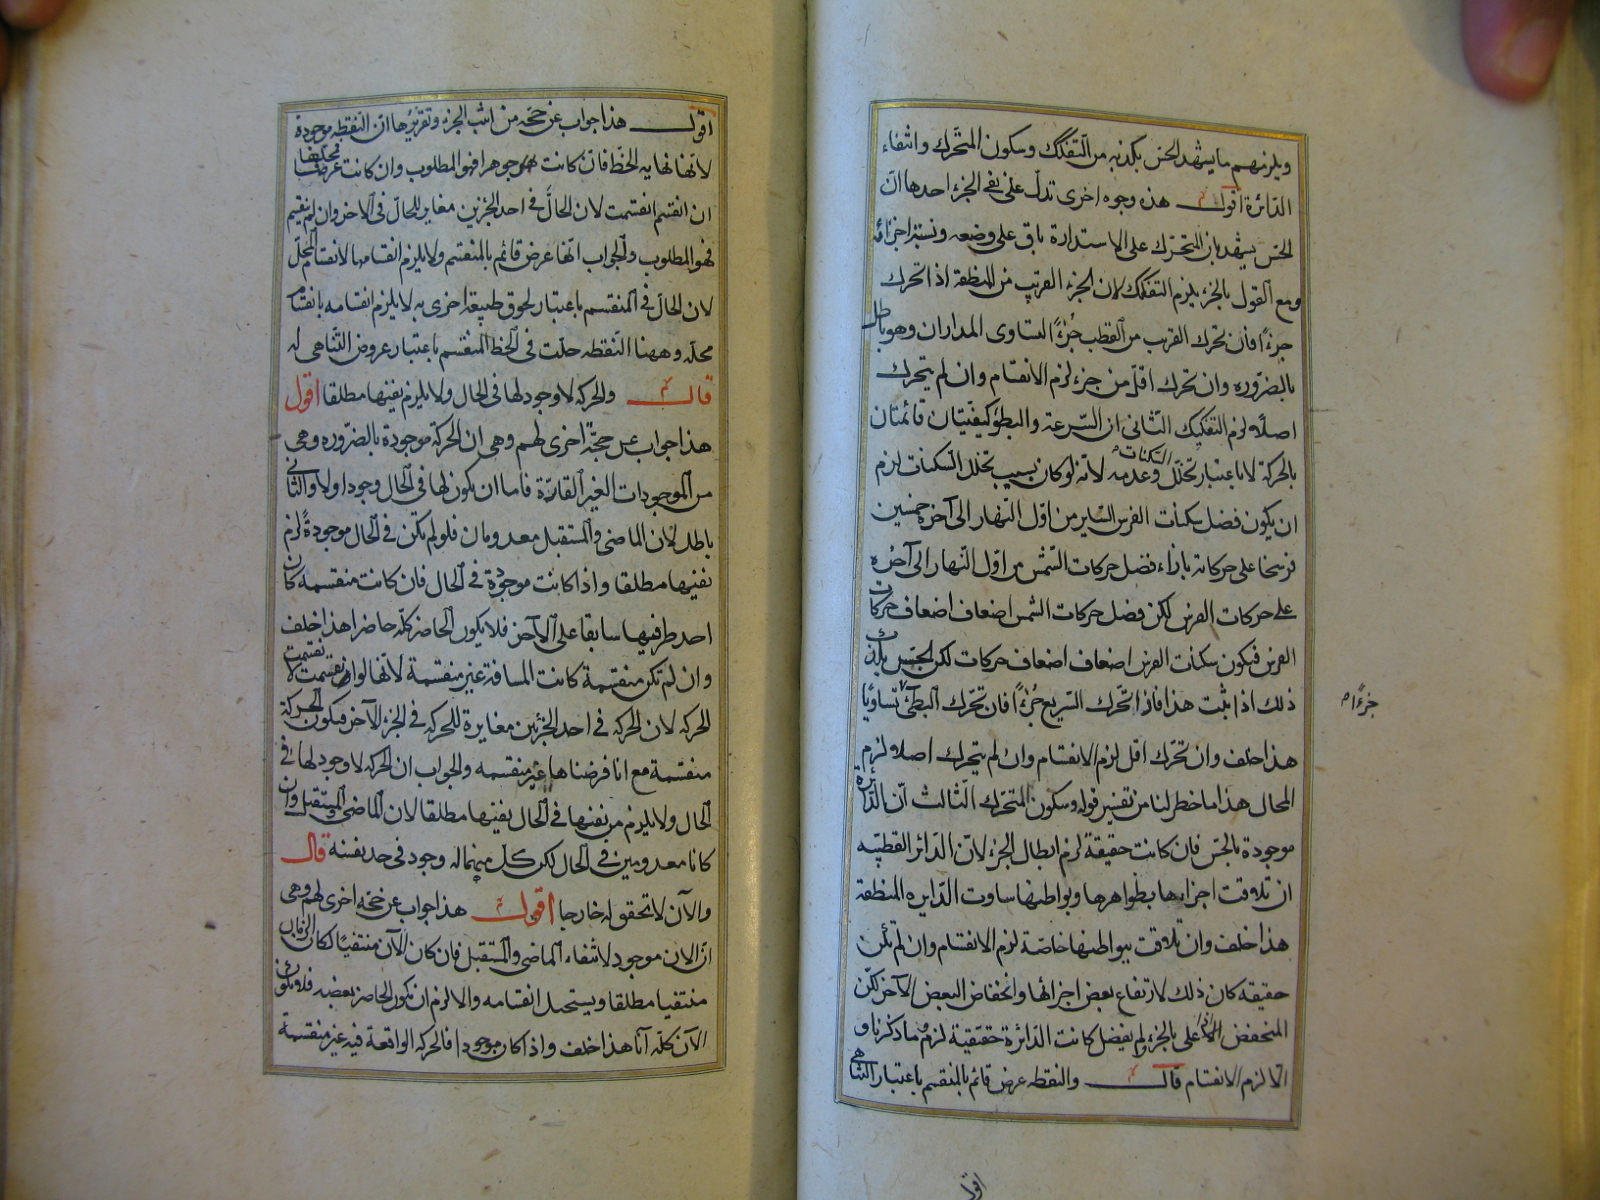 ويلزمهم ما يشهد الحس بكذبه من التفكك وسكون المتحرك وانتفاء
الدائرة اقول هذه وجوه اخرى تدل على نفى الجزء احدها ان
الحس يشهد بان المتحرك على الاستدارة باق على وضعه ونسبة اجزائه
ومع القول بالجزء يلزم التفكك لان الجزء القريب من المنطقة اذا تحرك
جزءًا فان تحرك القريب من القطب جزءًا لتساوى المداران وهو باطل
بالضروره وان تحرك اقل من جزء لزم الانقسام وان لم يتحرك
اصلًا لزم التفكيك الثانى ان السرعة والبطؤ كيفيتان قائمتان
بالحركة لا باعتبار تخلل السكنات وعدمه لانه لو كان بسبب تخلل السكنات لزم
ان يكون فضل سكنات الفرس الساير من اول النهار الى آخره خمسين
فرسخا على حركاته بازاء فضل حركات الشمس من اول النهار الى آخره
على حركات الفرس لكن فضل حركات الشمس اضعاف اضعاف حركات
الفرس فيكون سكنات الفرس اضعاف اضعاف حركات لكن الحس يكذب
ذلك اذا ثبت هذا فاذا تحرك السريع جزءًا فان تحرك البطئ تساويا
جزءًا
هذا خلف وان تحرك اقل لزم الانقسام وان لم يتحرك اصلا لزم
المحال هذا ما خطر لنا من تفسير قوله وسكون المتحرك الثالث ان الدائرة
موجودة بالحس فان كانت حقيقة لزم ابطال الجزء لان الدائر القطبيه
ان تلاقت اجزاءها بظواهرها وبواطنها ساوت الدايره المنطقة
هذا خلف وان تلاقت ببواطنها خاصة لزم الانقسام وان لم تكن
حقيقه كان ذلك لارتفاع بعض اجزائها وانخفاض البعض الآخر لكن
المنخفض الاعلى بالجزء ولم يفضل كانت الدائرة حقيقية لزم ما ذكرنا و
الا لزم الانقسام قال والنقطه عرض قائم بالمنقسم باعتبار التناهى
اقول
اقول هذا جواب عن حجة من اثبت الجزء وتقريرها ان النقطه موجودة
لانها نهايه الخط فان كانت جوهرا فهو المطلوب وان كانت عرضا فمحلها
ان انقسم انقسمت لان الحال فى احد الجزءين مغاير للحال فى الآخر وان لم ينقسم
فهو المطلوب والجواب انها عرض قائم بالمنقسم ولا يلزم انقسامها لانقسام المحل
لان الحال فى المنقسم باعتبار لحوق طبيعة اخرى به لا يلزم انقسامه بانقسام
محله وههنا النقطه حلت فى الخط المنقسم باعتبار عروض التناهى له
قال والحركه لا وجود لها فى الحال ولا يلزم نفيها مطلقا اقول
هذا جواب عن حجة اخرى لهم وهى ان الحركة موجودة بالضروره وهى
من الموجودات الغير القارة فاما ان يكون لها فى الحال وجود او لا والثانى
باطل لان الماضى والمستقبل معدومان فلو لم تكن فى الحال موجودة لزم
نفيها مطلقا واذا كانت موجودة فى الحال فان كانت منقسمة كان
احد طرفيها سابقا على الآخر فلا يكون الحاضر كله حاضرا هذا خلف
وان لم تكن منقسمة كانت المسافة غير منقسمة لانها لو انقسمت لانقسمت
الحركه لان الحركه فى احد الجزئين مغايرة للحركه فى الجزء الآخر فيكون الحركة
منقسمة مع انا فرضناها غير منقسمه والجواب ان الحركه لا وجود لها فى
الحال ولا يلزم من نفيها فى الحال نفيها مطلقا لان الماضى والمستقبل وان
كانا معدومين فى الحال لكن كل منهما له وجود فى حد نفسه قال
والآن لا تحقق له خارجا اقول هذا جواب عن حجة اخرى لهم وهى
ان الان موجود لانتفاء الماضى والمستقبل فان كان الآن منتفيًا كان الزمان
منتفيا مطلقا ويستحيل انقسامه والا لزم ان يكون الحاضر بعضه فلا يكون
الآن كله آنا هذا خلف واذا كان موجودا فالحركه الواقعة فيه غير منقسمة